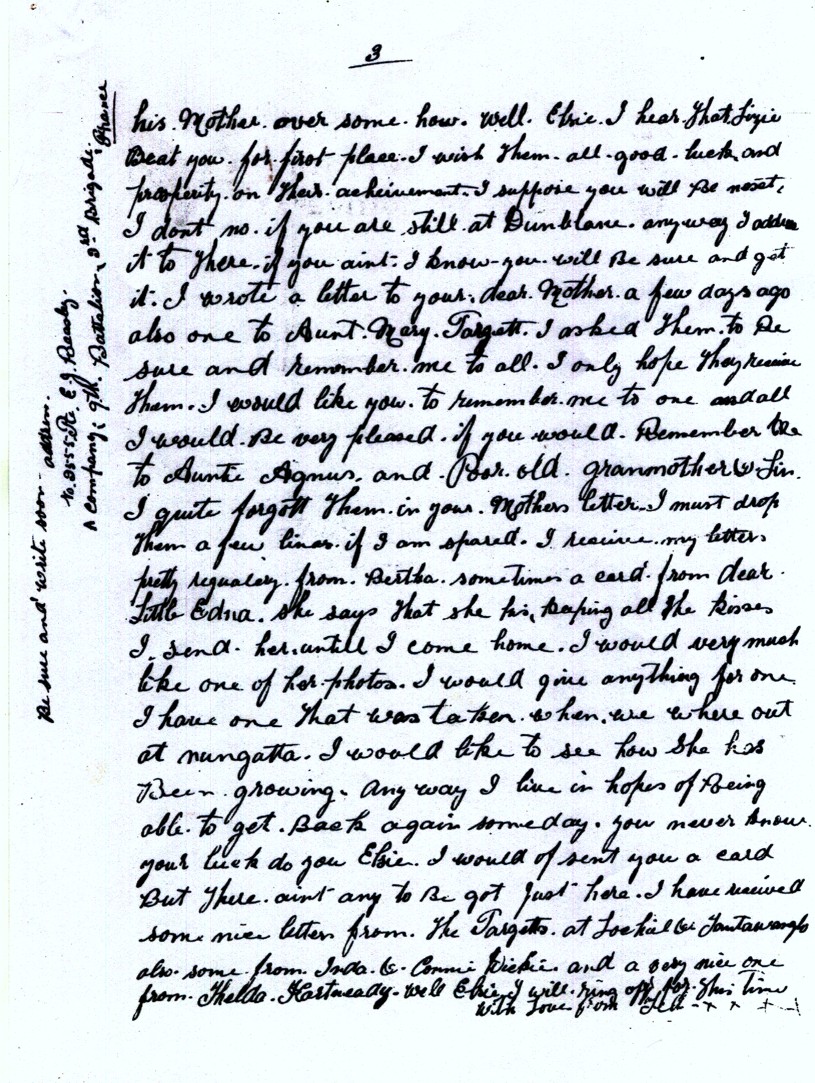 3
his Mother over some how. Well. Elsie. I hear that Lizie
Beat you. for first place. I wish them all good luck and
prosperity. on their acheivement. I suppose you will Be next,
I dont no. if you are still at Dunblane. anyway I address
it to there. if you aint. I know you will Be sure and get
it. I wrote a letter to your. dear. Mother. a few days ago
also one to Aunt. Mary. Targett. I asked them. to Be
sure and remember. me to all. I only hope they receive
them. I would like you. to remember me to one and all
I would. Be very pleased. if you would. Remember Me
to Auntie Agnus. and Poor. old. granmother & Jin.
I quite forgott them. in your. Mothers letter. I must drop
them a few lines. if I am spared. I receive my letters
pretty regualery. from. Bertha. sometimes a card. from dear
little Edna. she says that she is keeping all the kisses
I. send. her. untill I come home. I would very much
like one of her photos. I would give anything for one.
I have one that was taken. when. we where out
at nungatta. I would like to see how she has
Been growing. Any way I live in hopes of Being
able. to get. Back again someday. you never know.
your luck do you Elsie. I would of sent you a card
But there. aint any to Be got Just here. I have received
some nice letters from. the Targetts. at Lochiel &
also. some. from. Inda. &. Connie and a very nice one
from. Thelda. Hartneady. well Elsie I will ring off for this time
with Love from Ted - x x x
Be sure and write soon. address.
No. 3555. Pte E. J. Beasley.
A Company. 9th. Battalion, 3rd Brigade. France